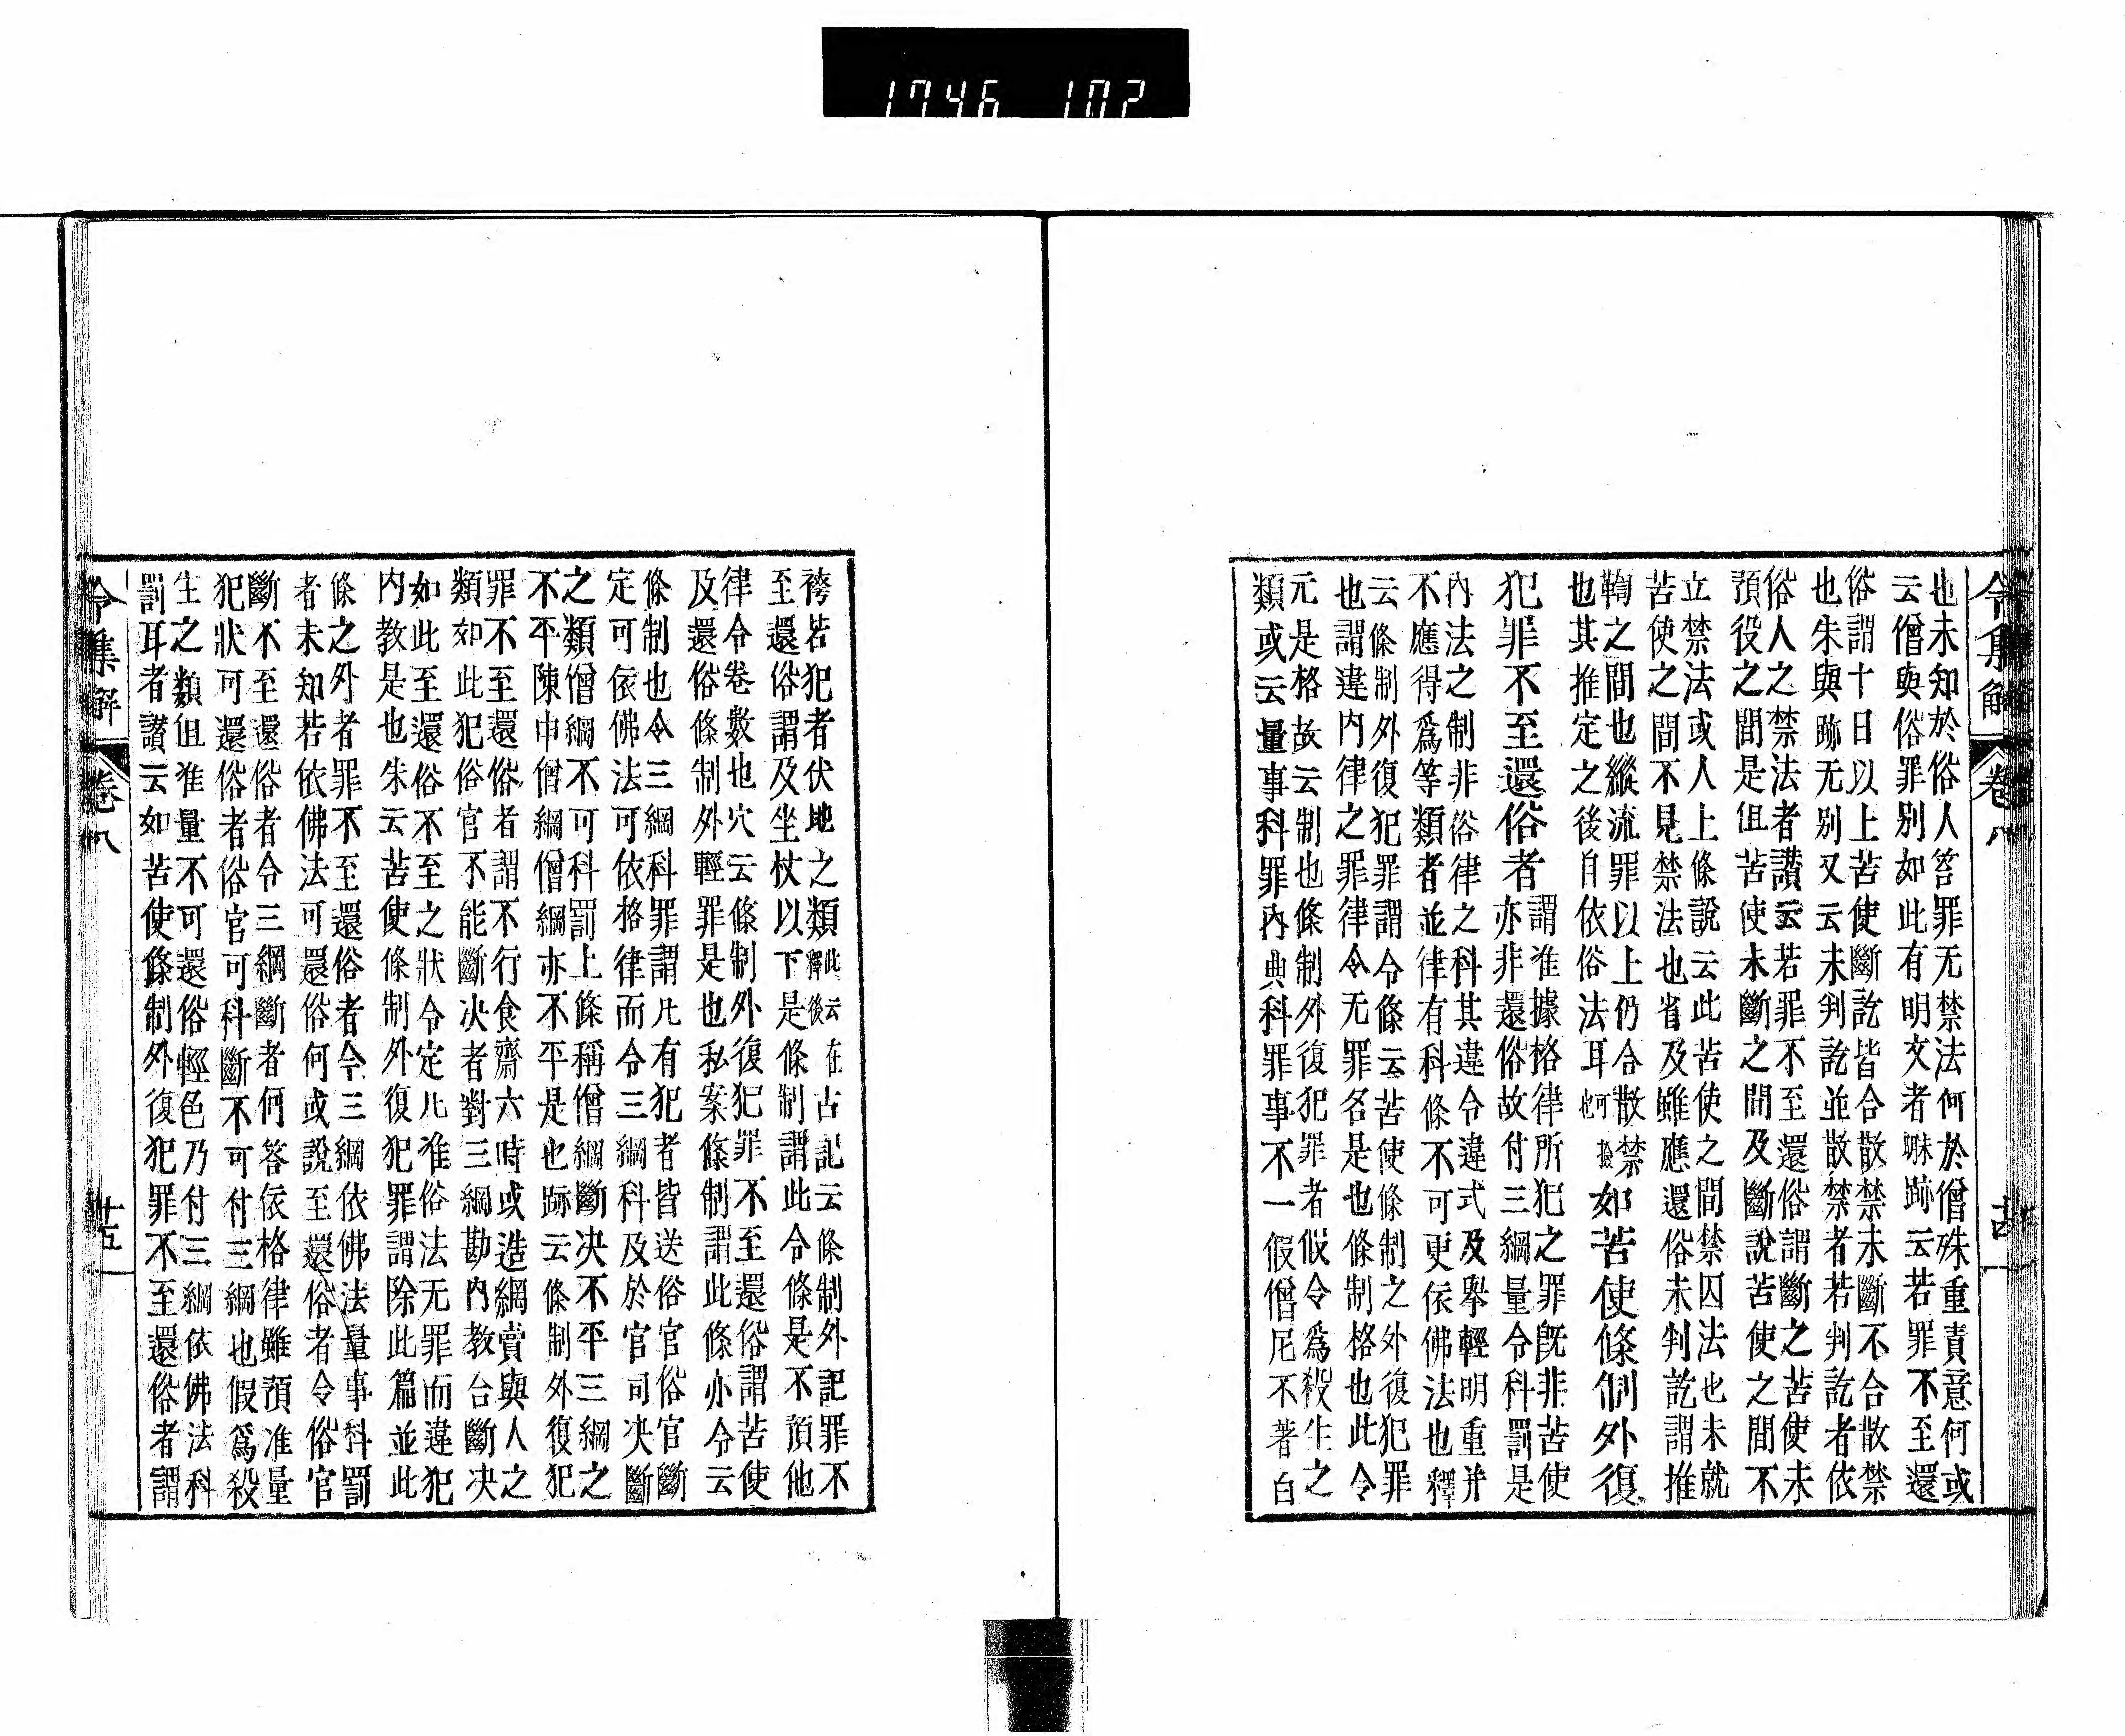 1746 102
令集解 卷八
也未知於俗人笞罪无禁法何於僧殊重責意何或
云僧與俗罪别如此有明文者哉跡云若罪不至還
俗謂十日以上苦使斷訖皆合散禁未斷不合散禁
也朱與跡无别又云未判訖並散禁者若判訖者依
俗人之禁法者讃云若罪不至還俗謂斷之苦使未
預役之間是但苦使未斷之間及斷說苦使之間不
立禁法或人上條說云此苦使之間禁囚法也未就
苦使之間不見禁法也省及雖應還俗未判訖謂推
鞫之間也縱流罪以上仍合散禁
也其推定之後自依俗法耳可
撿
也
如苦使條制外復
犯罪不至還俗者
謂准據格律所犯之罪旣非苦使
亦非還俗故付三綱量令科罰是
內法之制非俗律之科其違令違式及擧輕明重并
不應得爲等類者並律有科條不可更依佛法也釋
云條制外復犯罪謂令條云苦使條制之外復犯罪
也謂違内律之罪律令无罪名是也條制格也此令
元是格故云制也條制外復犯罪者假令爲殺生之
類或云量事科罪內典科罪事不一假僧尼不著白
袴若犯者伏地之類
此釋云
後
在古記云條制外記罪不
至還俗謂及坐杖以下是條制謂此令條是不預他
律令卷數也穴云條制外復犯罪不至還俗謂苦使
及還俗條制外輕罪是也私案條制謂此條亦令云
條制也令三綱科罪謂凡有犯者皆送俗官俗官斷
定可依佛法可依格律而令三綱科及於官司决斷
之類僧綱不可科罰上條稱僧綱斷决不平三綱之
不平陳申僧綱僧綱亦不平是也跡云條制外復犯
罪不至還俗者謂不行食齋六時或造綱賣與人之
類如此犯俗官不能斷决者對三綱勘内教合斷决
如此至還俗不至之狀令定凡准俗法无罪而違犯
内教是也朱云苦使條制外復犯罪謂除此篇並此
條之外者罪不至還俗者令三綱依佛法量事科罰
者未知若依佛法可還俗何或說至還俗者令俗官
斷不至還俗者令三綱斷者何答依格律雖預准量
犯狀可還俗者俗官可科斷不可付三綱也假爲殺
生之類但准量不可還俗輕色乃付三綱依佛法科
罰耳者讃云如苦使條制外復犯罪不至還俗者謂
令集解 卷八 廿五